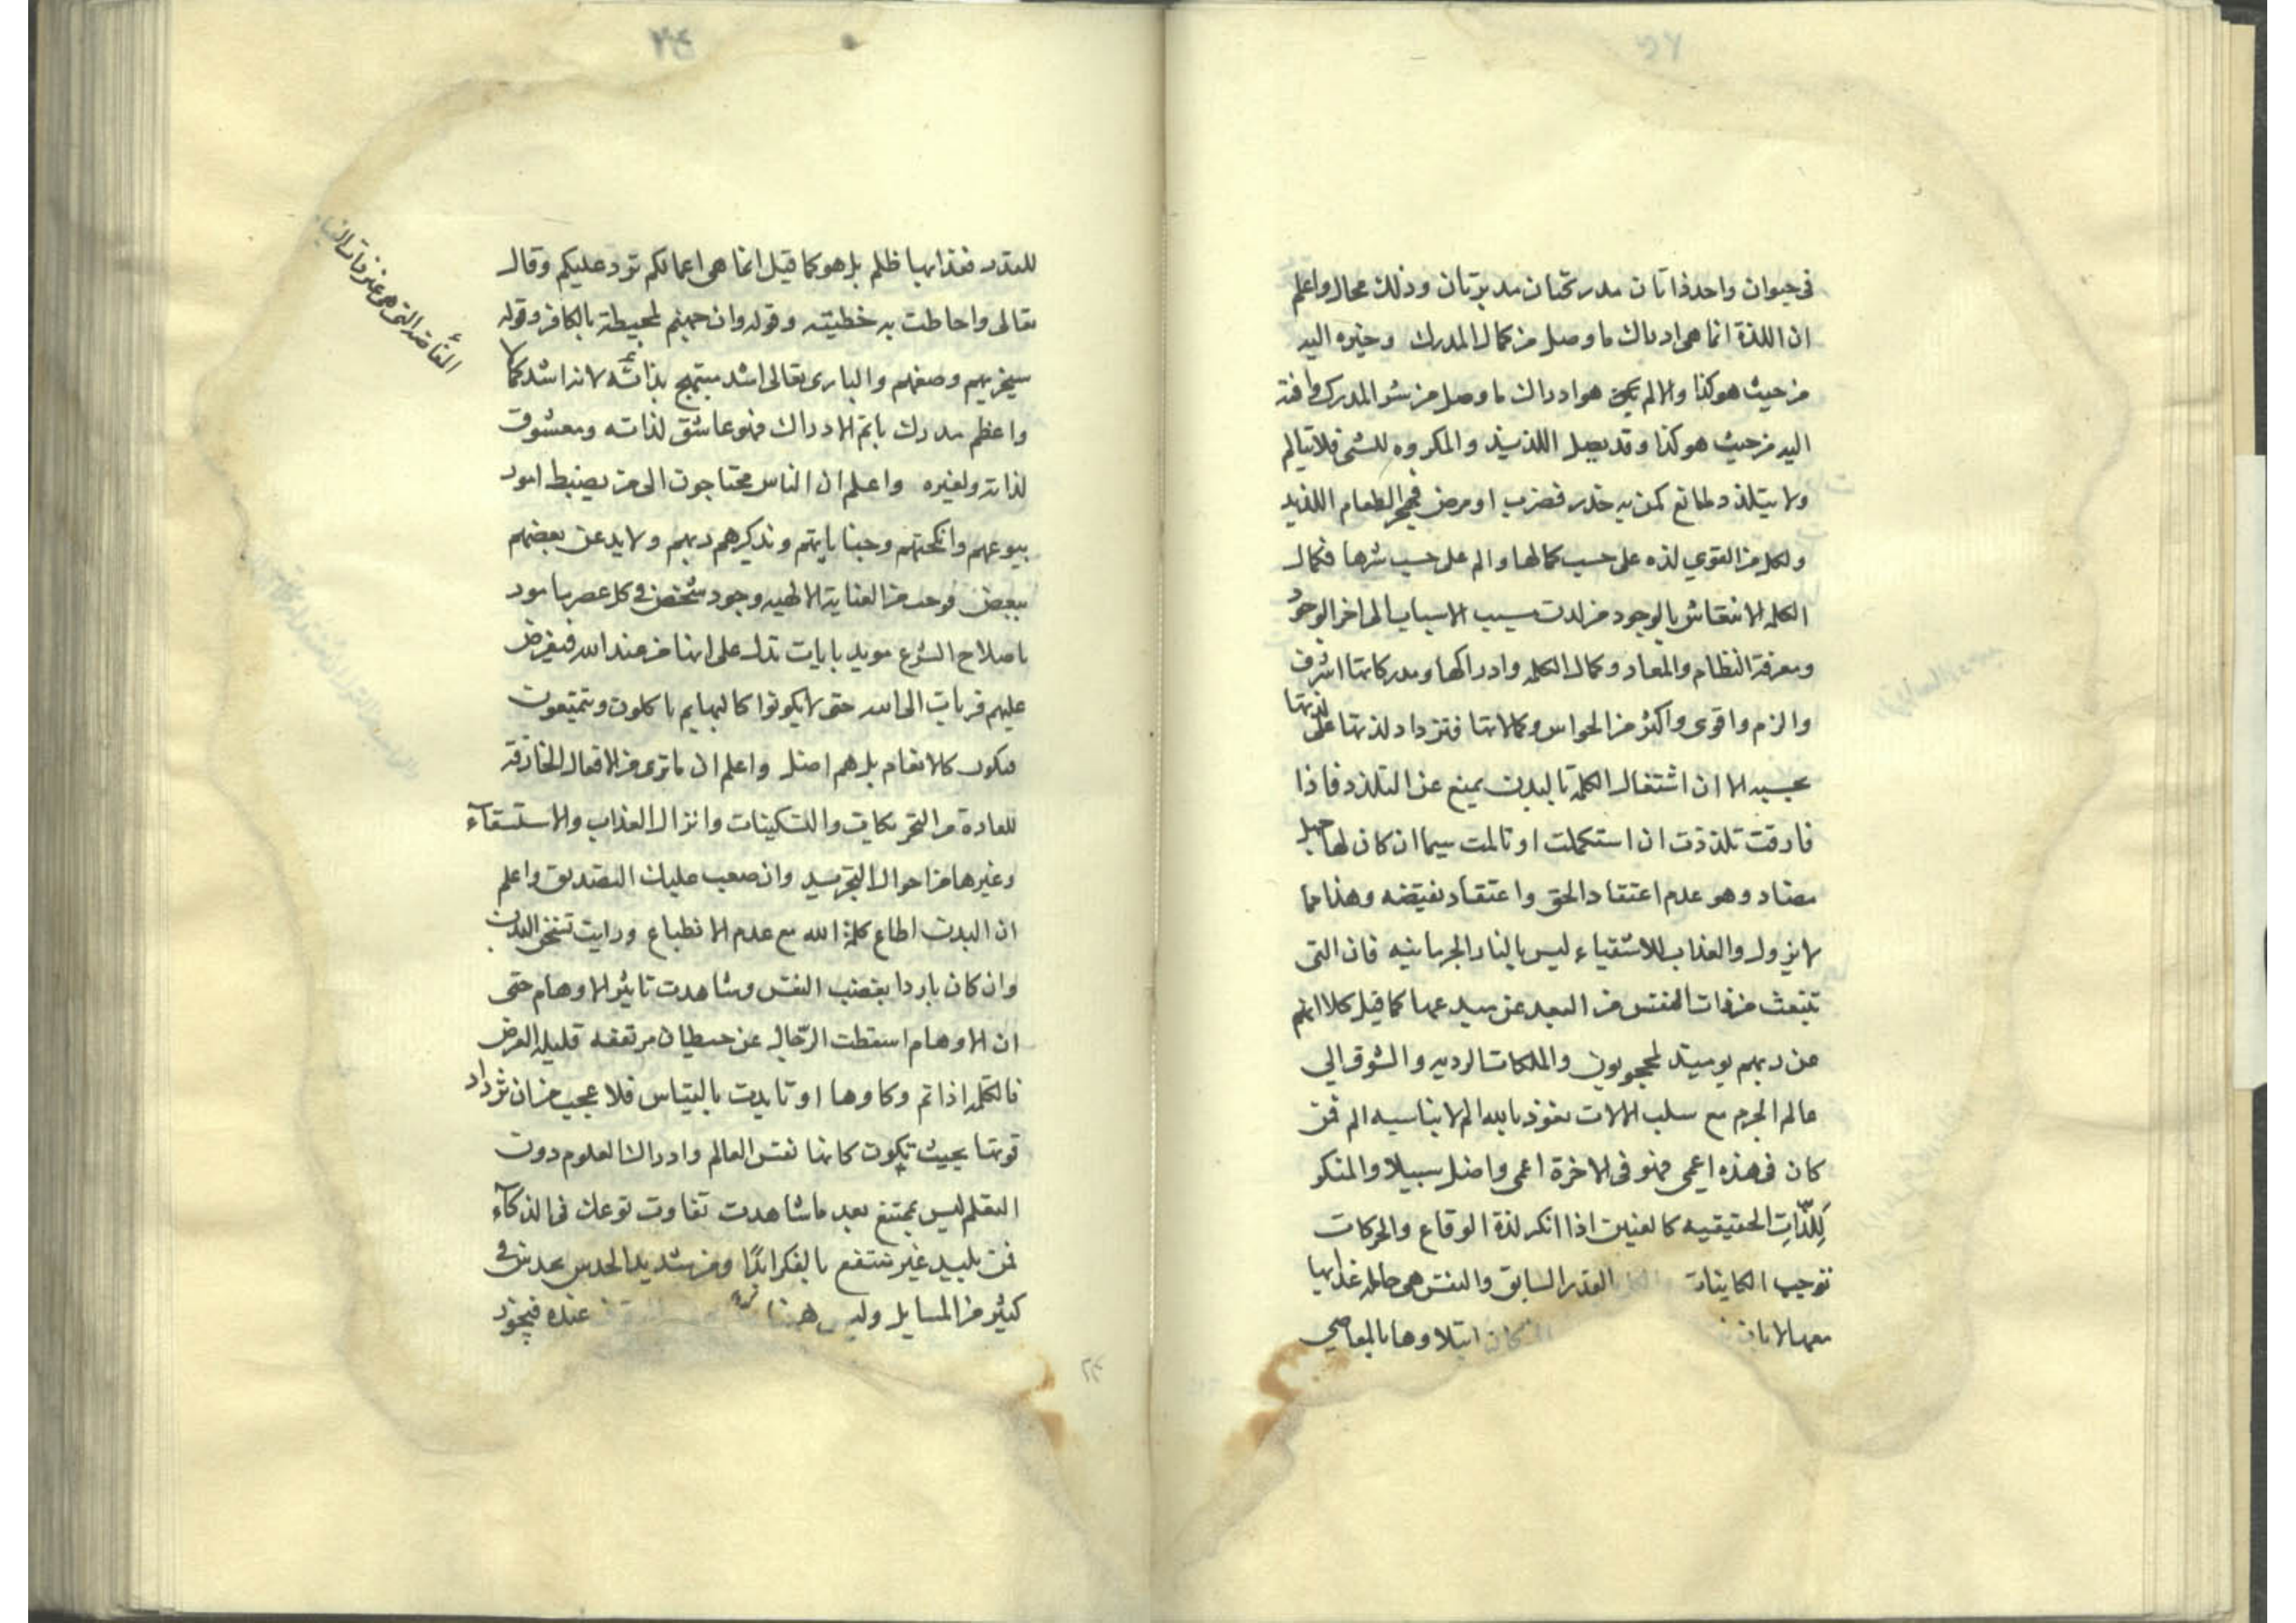 في حيوان واحد ذاتان مدركتان مدبرتان وذلك محال واعلم
ان اللذة انما هى ادراك ما وصل من كمال المدرك وخيره اليه
من حيث هو كذا والالم هو ادراك ما وصل من شر المدرك وافته
اليه من حيث هو كذا وقد يصل اللذيذ والمكروه للشئ فلا يتالم
ولا يتلذذ لمانع كمن به خدر فضرب او مرض فهجر الطعام اللذيذ
ولكل من القوي لذه على حسب كمالها والم على حسب شرها فكمال
الكلمه الانتقاش بالوجود من لدن مسبب الاسباب الى اخر الوجود
ومعرفة النظام والمعاد وكمال الكلمه وادراكها ومدركاتها اشرف
والزم واقوى واكثر من الحواس وكمالاتها فتزداد لذتها على لذتها
بحسبه الا ان اشتغال الكلمة بالبدن يمنع عن التلذذ فاذا
فارقت تلذذت ان استكملت او تالمت سيما ان كان لها جهل
مضاد وهو عدم اعتقاد الحق واعتقاد نقيضه وهذا مما
لا يزول والعذاب للاشقياء ليس بالنار الجرمانيه فان التى
تنبعث من ذات النفس من البعد عن مبدعها كما قيل كلا انهم
عن ربهم يوميذ لمحجوبون والملكات الرديه والشوق الي
عالم الجرم مع سلب الالات نعوذ بالله الم لا يناسبه الم فمن
كان فى هذه اعمى فهو فى الاخرة اعمى واضل سبيلا والمنكر
لِلَذّاتِ الحقيقيه كالعنين اذا انكر لذة الوقاع والحركات
توجب الكاينات القدر السابق والنفس هى حامله عذابها
معها لا بان كان ابتلاوها بالمعاصي
للقدر فعذابها ظلم بل هو كما قيل انما هى اعمالكم ترد عليكم وقال
تعالى واحاطت به خطيئته وقوله وان جهنم لمحيطة بالكافرين وقوله
سيجزيهم وصفهم والبارى تعالى اشد مبتهج بذاته لانه اشد كمالا
واعظم مدرك باتم الادراك فهو عاشق لذاته ومعشوق
لذاته ولغيره واعلم ان الناس محتاجون الى من يضبط امور
بيوعهم وانكحتهم وجناياتهم وتذكيرهم ربهم ولا بد عن بعضهم
ببعض فوجب من العناية الالهيه وجود شخص فى كل عصر مامور
باصلاح الشرع مويد بايات تدل على انها من عند الله فيفرض
عليهم قربات الى الله حتى لا يكونوا كالبهايم ياكلون ويتمتعون
فيكون كالانعام بل هم اضل واعلم ان ما ترى من الافعال الخارقة
للعادة من التحريكات والتسكينات وانزال العذاب والاستسقآء
وغيرها من احوال التجريد وان صعب عليك التصديق واعلم
ان البدن اطاع كلمة الله مع عدم الانطباع ورايت تسخن البدن
وان كان باردا بغضب النفس وشاهدت تاثير الاوهام حتى
ان الاوهام اسقطت الرجال عن حيطان مرتفعه قليله العرض
فالكلمه اذا تم زكاوها او تايدت بالقياس فلا عجب من ان تزداد
قوتها بحيث تكون كانها نفس العالم وادراك العلوم دون
التعلم ليس بممتنع بعد ما شاهدت تفاوت نوعك فى الذكآء
فمن بليد غير منتفع بالفكر ابدًا ومن شديد الحدس بحدس فى
كثير من المسايل وليس هنا عنده فيجوز
الفائضة التي هو غير ذات